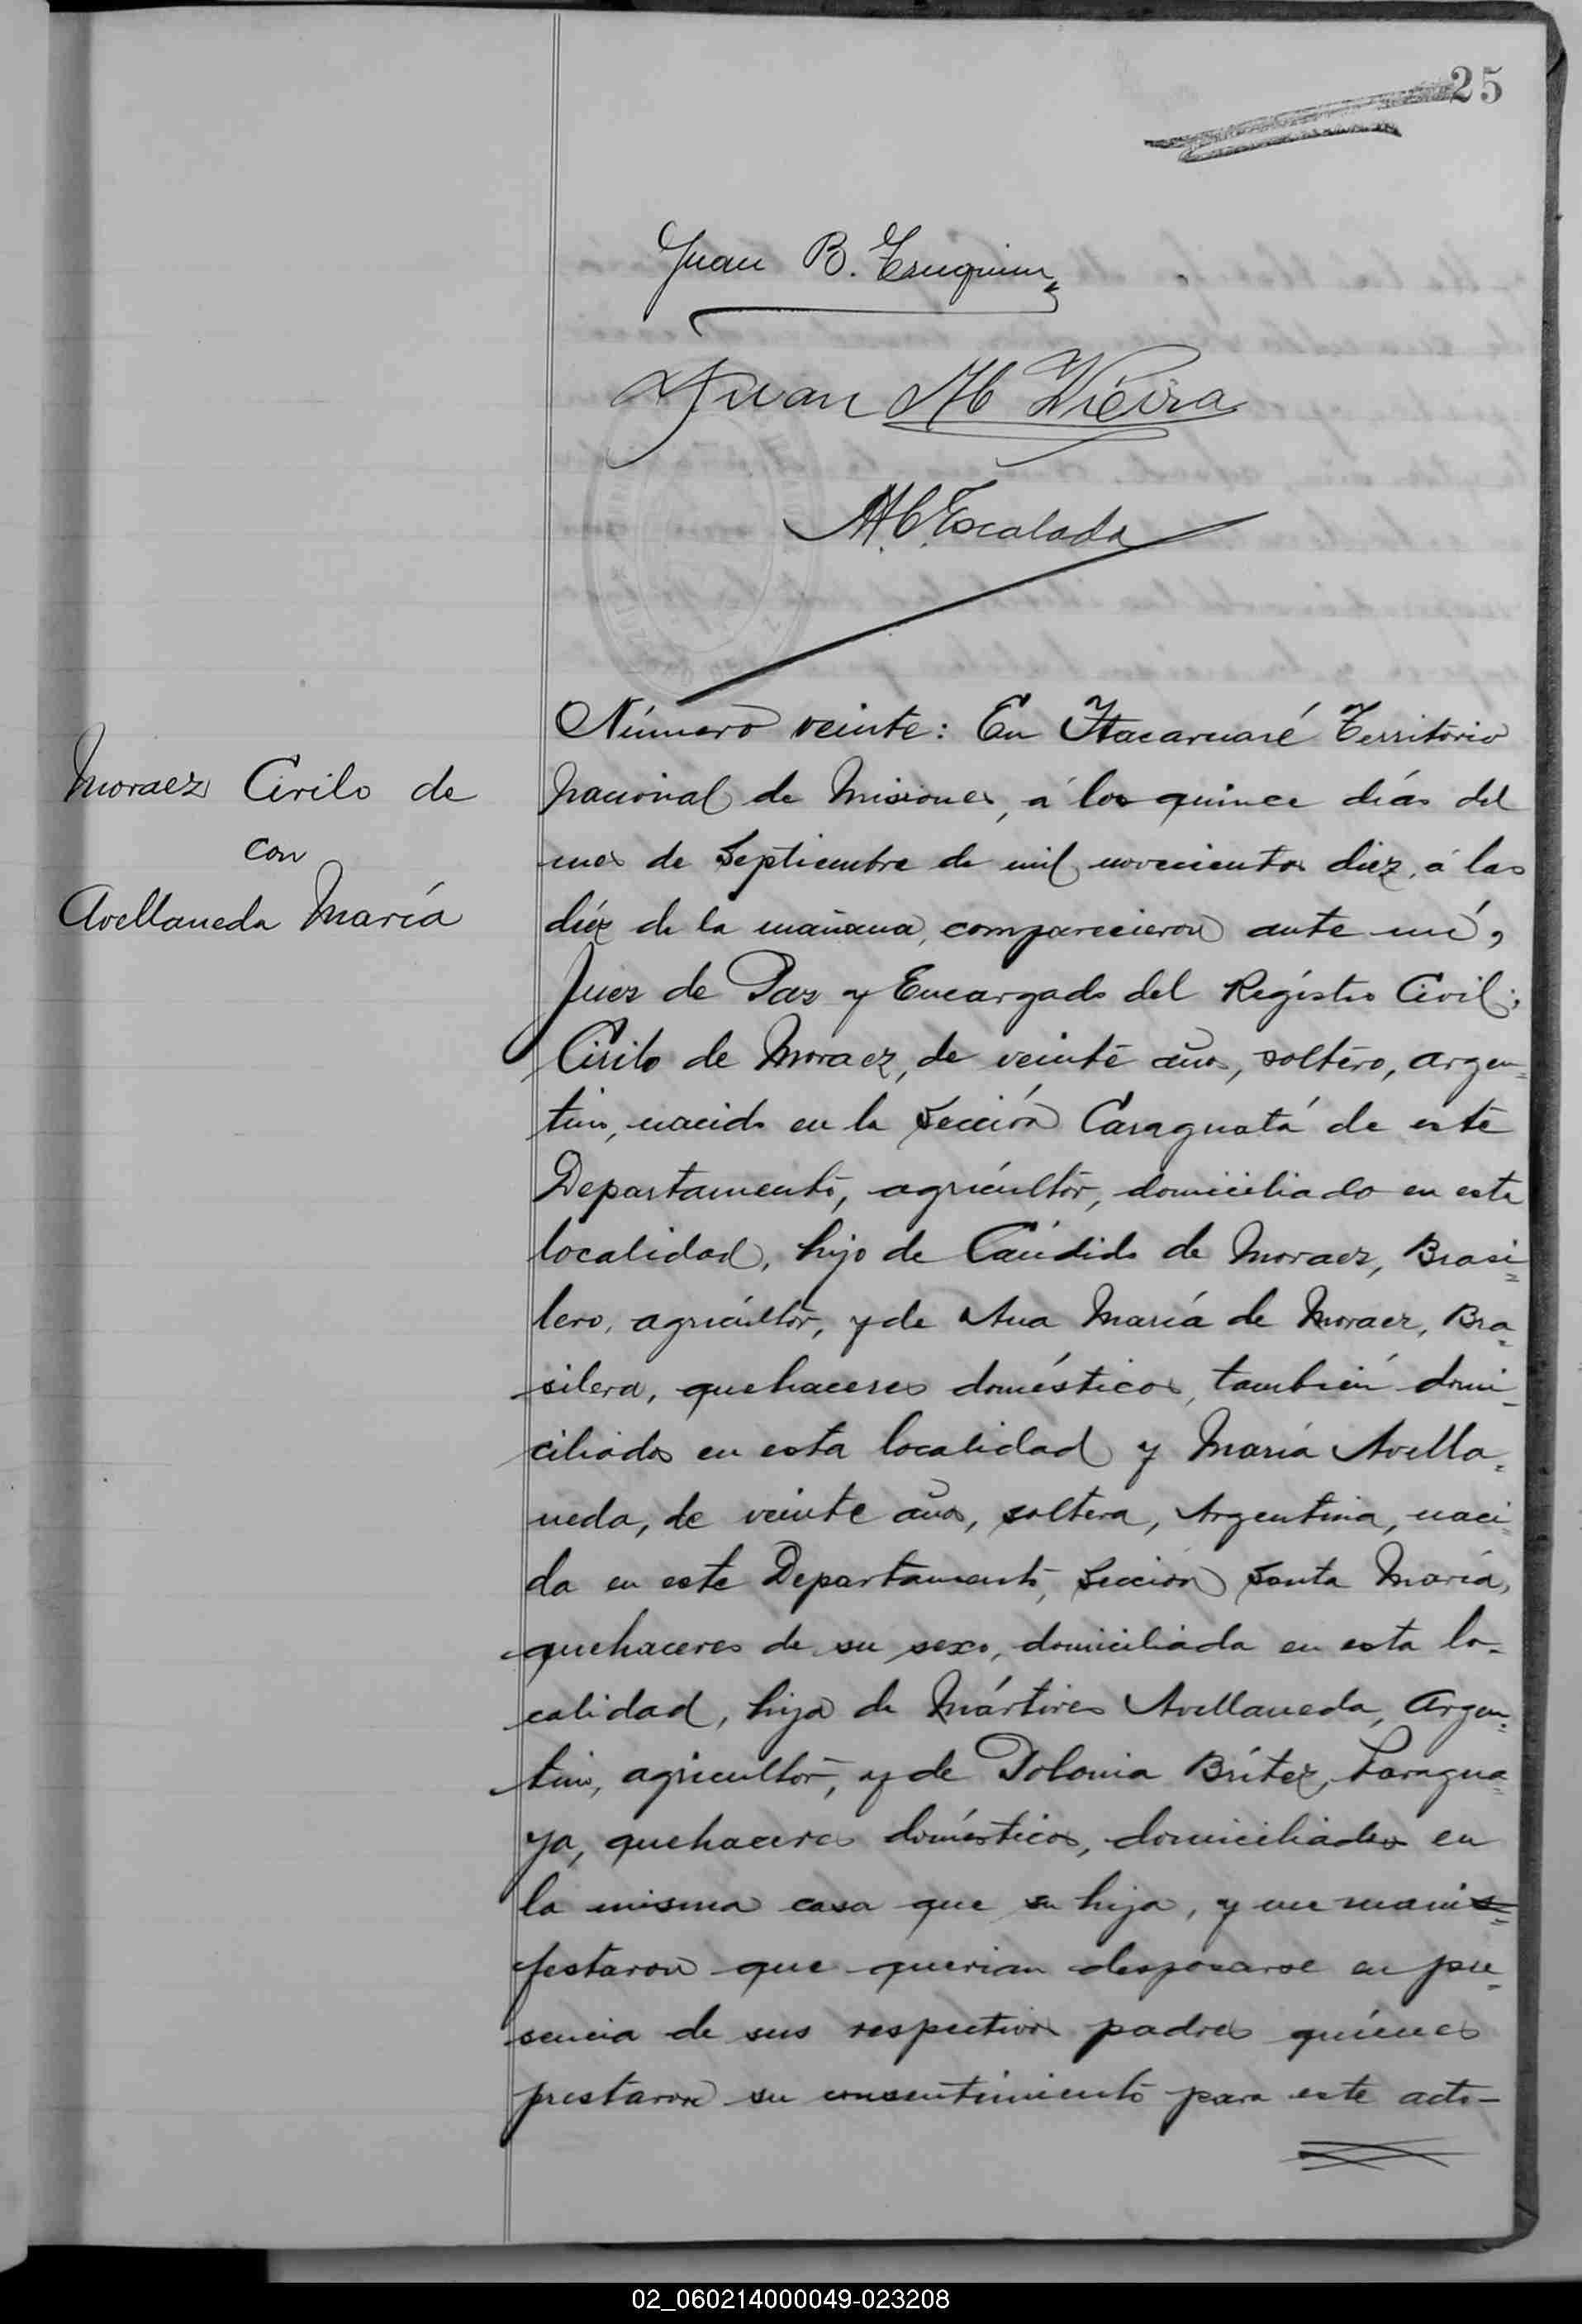 25
Juan B.
Juan M Vieira
M. C. Escalada
Número veinte: En Itacaruaré Territorio
Moraez Cirilo de
con
Avellaneda María
Nacional de Misiones, á los quince días del
mes de Septiembre de mil novecientos diez, á las
diéz de la mañana, comparecieron ante mí,
Juez de Paz y Encargado del Registro Civil;
Cirilo de Moraez, de veinte años, soltero, argen=
tino, nacido en la Sección Caraguatá de este
Departamento, agricultor, domiciliado en esta
localidad, hijo de Cándido de Moraez, Brasi=
lero, agricultor, y de Ana María de Moraez, Bra=
silera, quehaceres domésticos, también domi-
ciliados en esta localidad y María Avella=
neda, de veinte años, soltera, Argentina, naci-
da en este Departamento, Sección Santa María,
quehaceres de su sexo, domiciliada en esta lo=
calidad, hija de Mártires Avellaneda, Argen=
tino, agricultor, y de Polonia Brítez, Paragua=
ya, quehaceres domésticos, domiciliados en
la misma casa que su hija, y me mani=
festaron que querian desposarse en pre=
sencia de sus respectivos padres quiénes
prestaron su consentimiento para este acto-
02_060214000049-023208